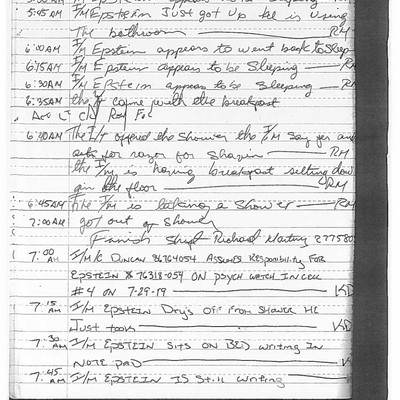 5:00AM I/M Epstein appears to be sleeping RM
5:45AM I/M Epstein Just got up he is using
The bathroom RM
6:00AM I/M Epstein appears to went back to sleep
6:15AM I/M Epstein appears to be Sleeping RM
6:30AM I/M Epstein appears to be Sleeping RM
6:35AM the came with the breakfast
6:40AM The offered the Shower the I/M say yes and
for razor for Shavin
the I/M is having breakfast sitting down
in the floor RM
6:45AM The I/M is taking a shower RM
7:00AM got out of Shower
Finish Shift Richard
7:00 AM I/M K DUNCAN ASSUMES Responsibility FOR
EPSTEIN # 76318-054 ON PSYCH WATCH IN CELL
#4 ON 7-29-19 KD
7:15 AM I/M EPSTEIN Drys OFF From SHOWER HE
Just took KD
7:30 AM I/M EPSTEIN SITS ON BED WRITING IN
NOTE PAD K
7:45 AM I/M EPSTEIN IS Still writing